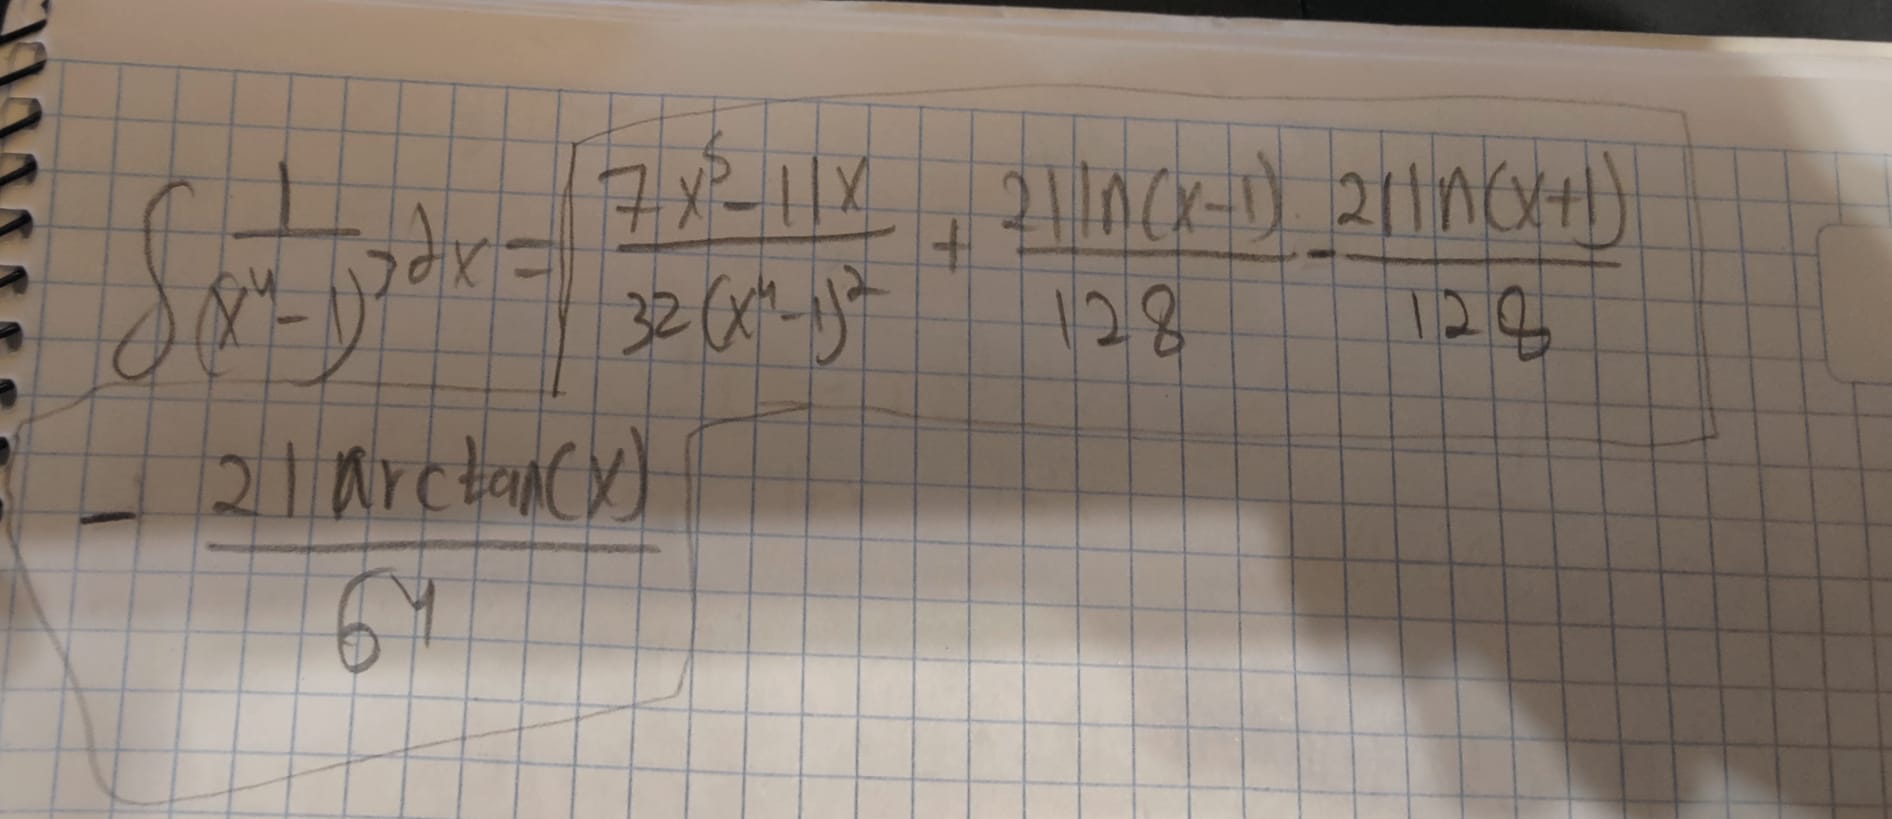 ∫ 1/(x⁴-1)³ dx = (7x⁵-11x)/(32(x⁴-1)²) + 21ln(x-1)/128 - 21ln(x+1)/128
- 21arctan(x)/64